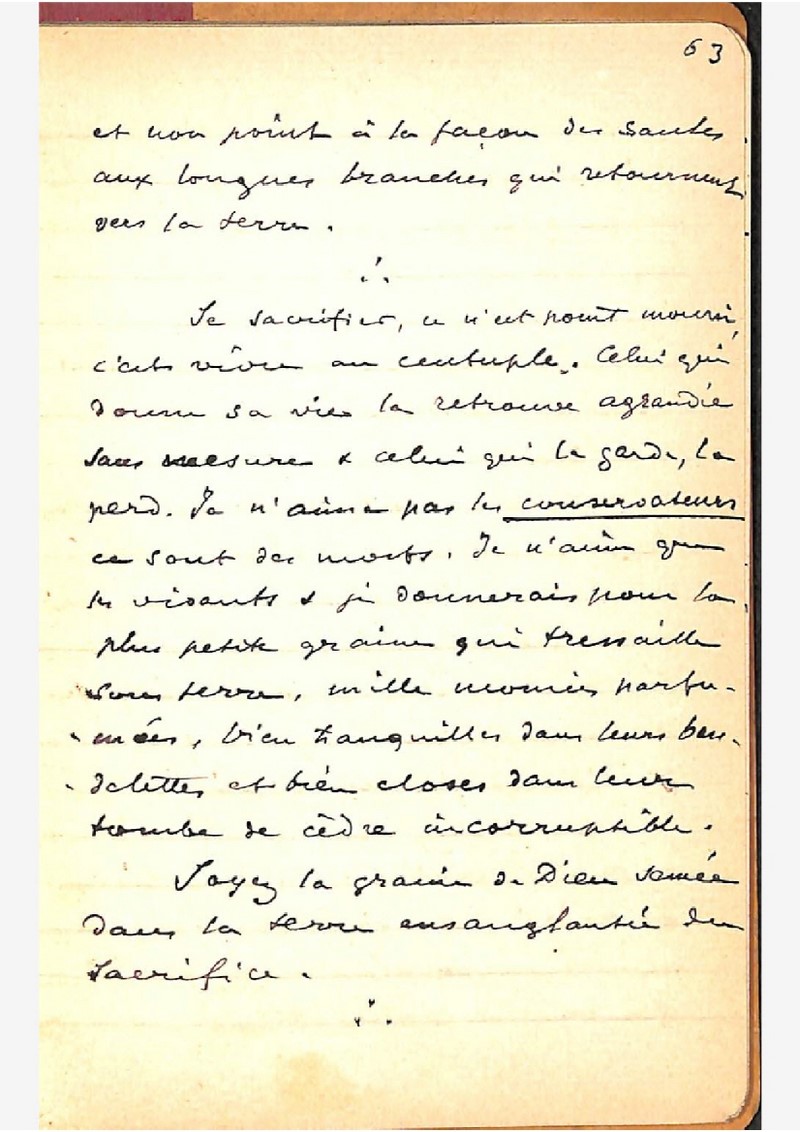 63
et non point à la façon des saules
aux longues branches qui retournent
vers la terre.
∴
Se sacrifier, ce n'est point mourir,
c'est vivre au centuple. Celui qui
donne sa vie la retrouve agrandie
sans mesure & celui qui la garde, la
perd. Je n'aime pas les conservateurs
ce sont des morts. Je n'aime que
les vivants & je donnerais pour la
plus petite graine qui tressaille
sous terre, mille momies parfu-
-mées, bien tranquilles dans leurs ban-
-delettes et bien closes dans leur
tombe de cèdre incorruptible.
Soyez la graine de Dieu semée
dans la terre ensanglantée du
sacrifice.
∴